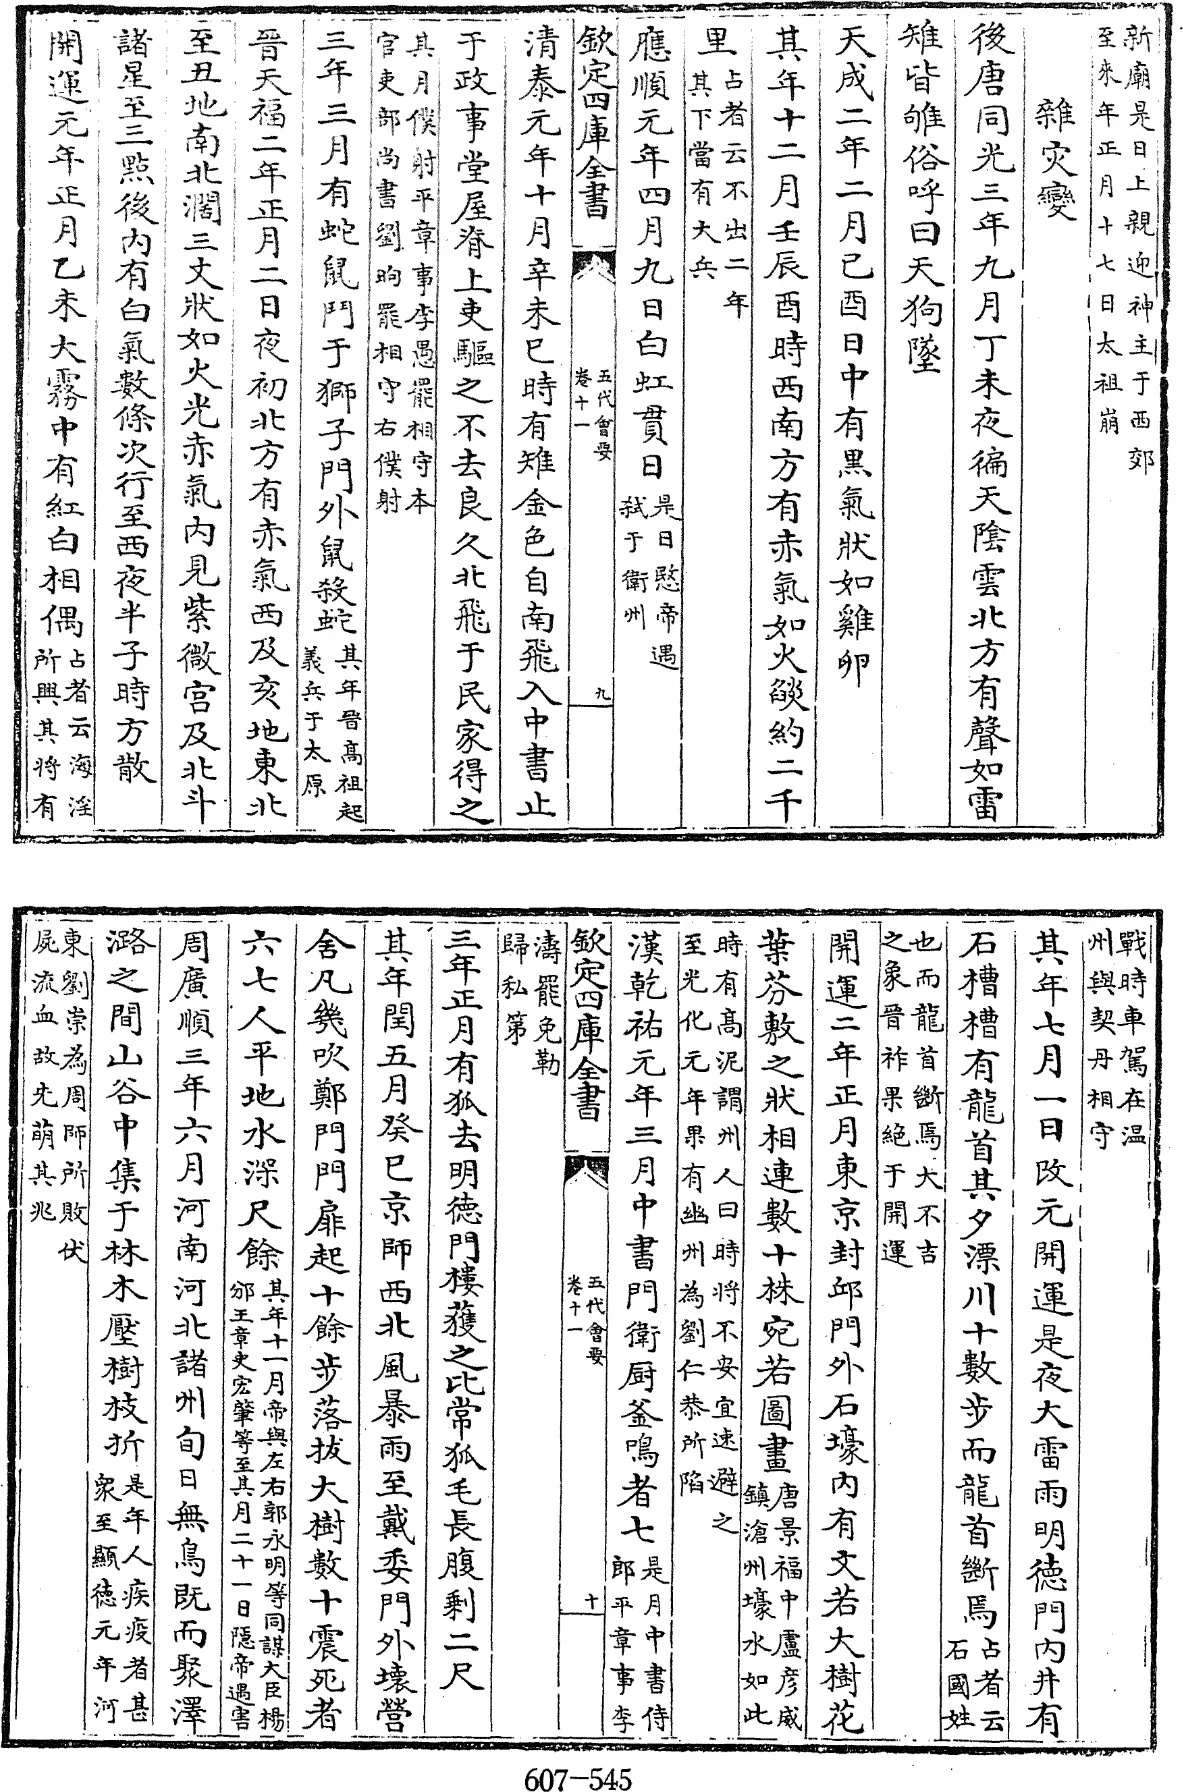 新廟是日上親迎神主于西郊
至來年正月十七日太祖崩
雜灾變
後唐同光三年九月丁未夜徧天陰雲北方有聲如雷
雉皆雊俗呼曰天狗墜
天成二年二月已酉日中有黑氣狀如雞卵
其年十二月壬辰酉時西南方有赤氣如火燄約二千
里
占者云不出二年
其下當有大兵
應順元年四月九日白虹貫日
是日愍帝遇
弒于衛州
欽定四庫全書
五代會要
卷十一
九
清泰元年十月辛未巳時有雉金色自南飛入中書止
于政事堂屋脊上吏驅之不去良久北飛于民家得之
其月僕射平章事李愚罷相守本
官吏部尚書劉昫罷相守右僕射
三年三月有蛇鼠鬥于獅子門外鼠殺蛇
其年晉髙祖起
義兵于太原
晉天福二年正月二日夜初北方有赤氣西及亥地東北
至丑地南北濶三丈狀如火光赤氣内見紫微宫及北斗
諸星至三點後内有白氣數條次行至西夜半子時方散
開運元年正月乙未大霧中有紅白相偶
占者云海淫
所興其將有
戰時車駕在温
州與契丹相守
其年七月一日改元開運是夜大雷雨明德門内井有
石槽槽有龍首其夕漂川十數步而龍首斷焉
占者云
石國姓
也而龍首斷焉大不吉
之象晉祚果絶于開運
開運二年正月東京封邱門外石壕内有文若大樹花
葉芬敷之狀相連數十株宛若圖畫
唐景福中盧彦威
鎮滄州壕水如此
時有髙泥謂州人曰時將不安宜速避之
至光化元年果有幽州為劉仁恭所陷
漢乾祐元年三月中書門衛厨釜鳴者七
是月中書侍
郎平章事李
欽定四庫全書
五代會要
卷十一
十
濤罷免勒
歸私第
三年正月有狐去明德門樓獲之比常狐毛長腹剩二尺
其年閏五月癸巳京師西北風暴雨至戴委門外壊營
舍凡幾吹鄭門門扉起十餘步落拔大樹數十震死者
六七人平地水深尺餘
其年十一月帝與左右郭永明等同謀大臣楊
邠王章史宏肇等至其月二十一日隱帝遇害
周廣順三年六月河南河北諸州旬日無鳥既而聚澤
潞之間山谷中集于林木壓樹枝折
是年人疾疫者甚
衆至顯德元年河
東劉崇為周師所敗伏
屍流血故先萌其兆
607-545